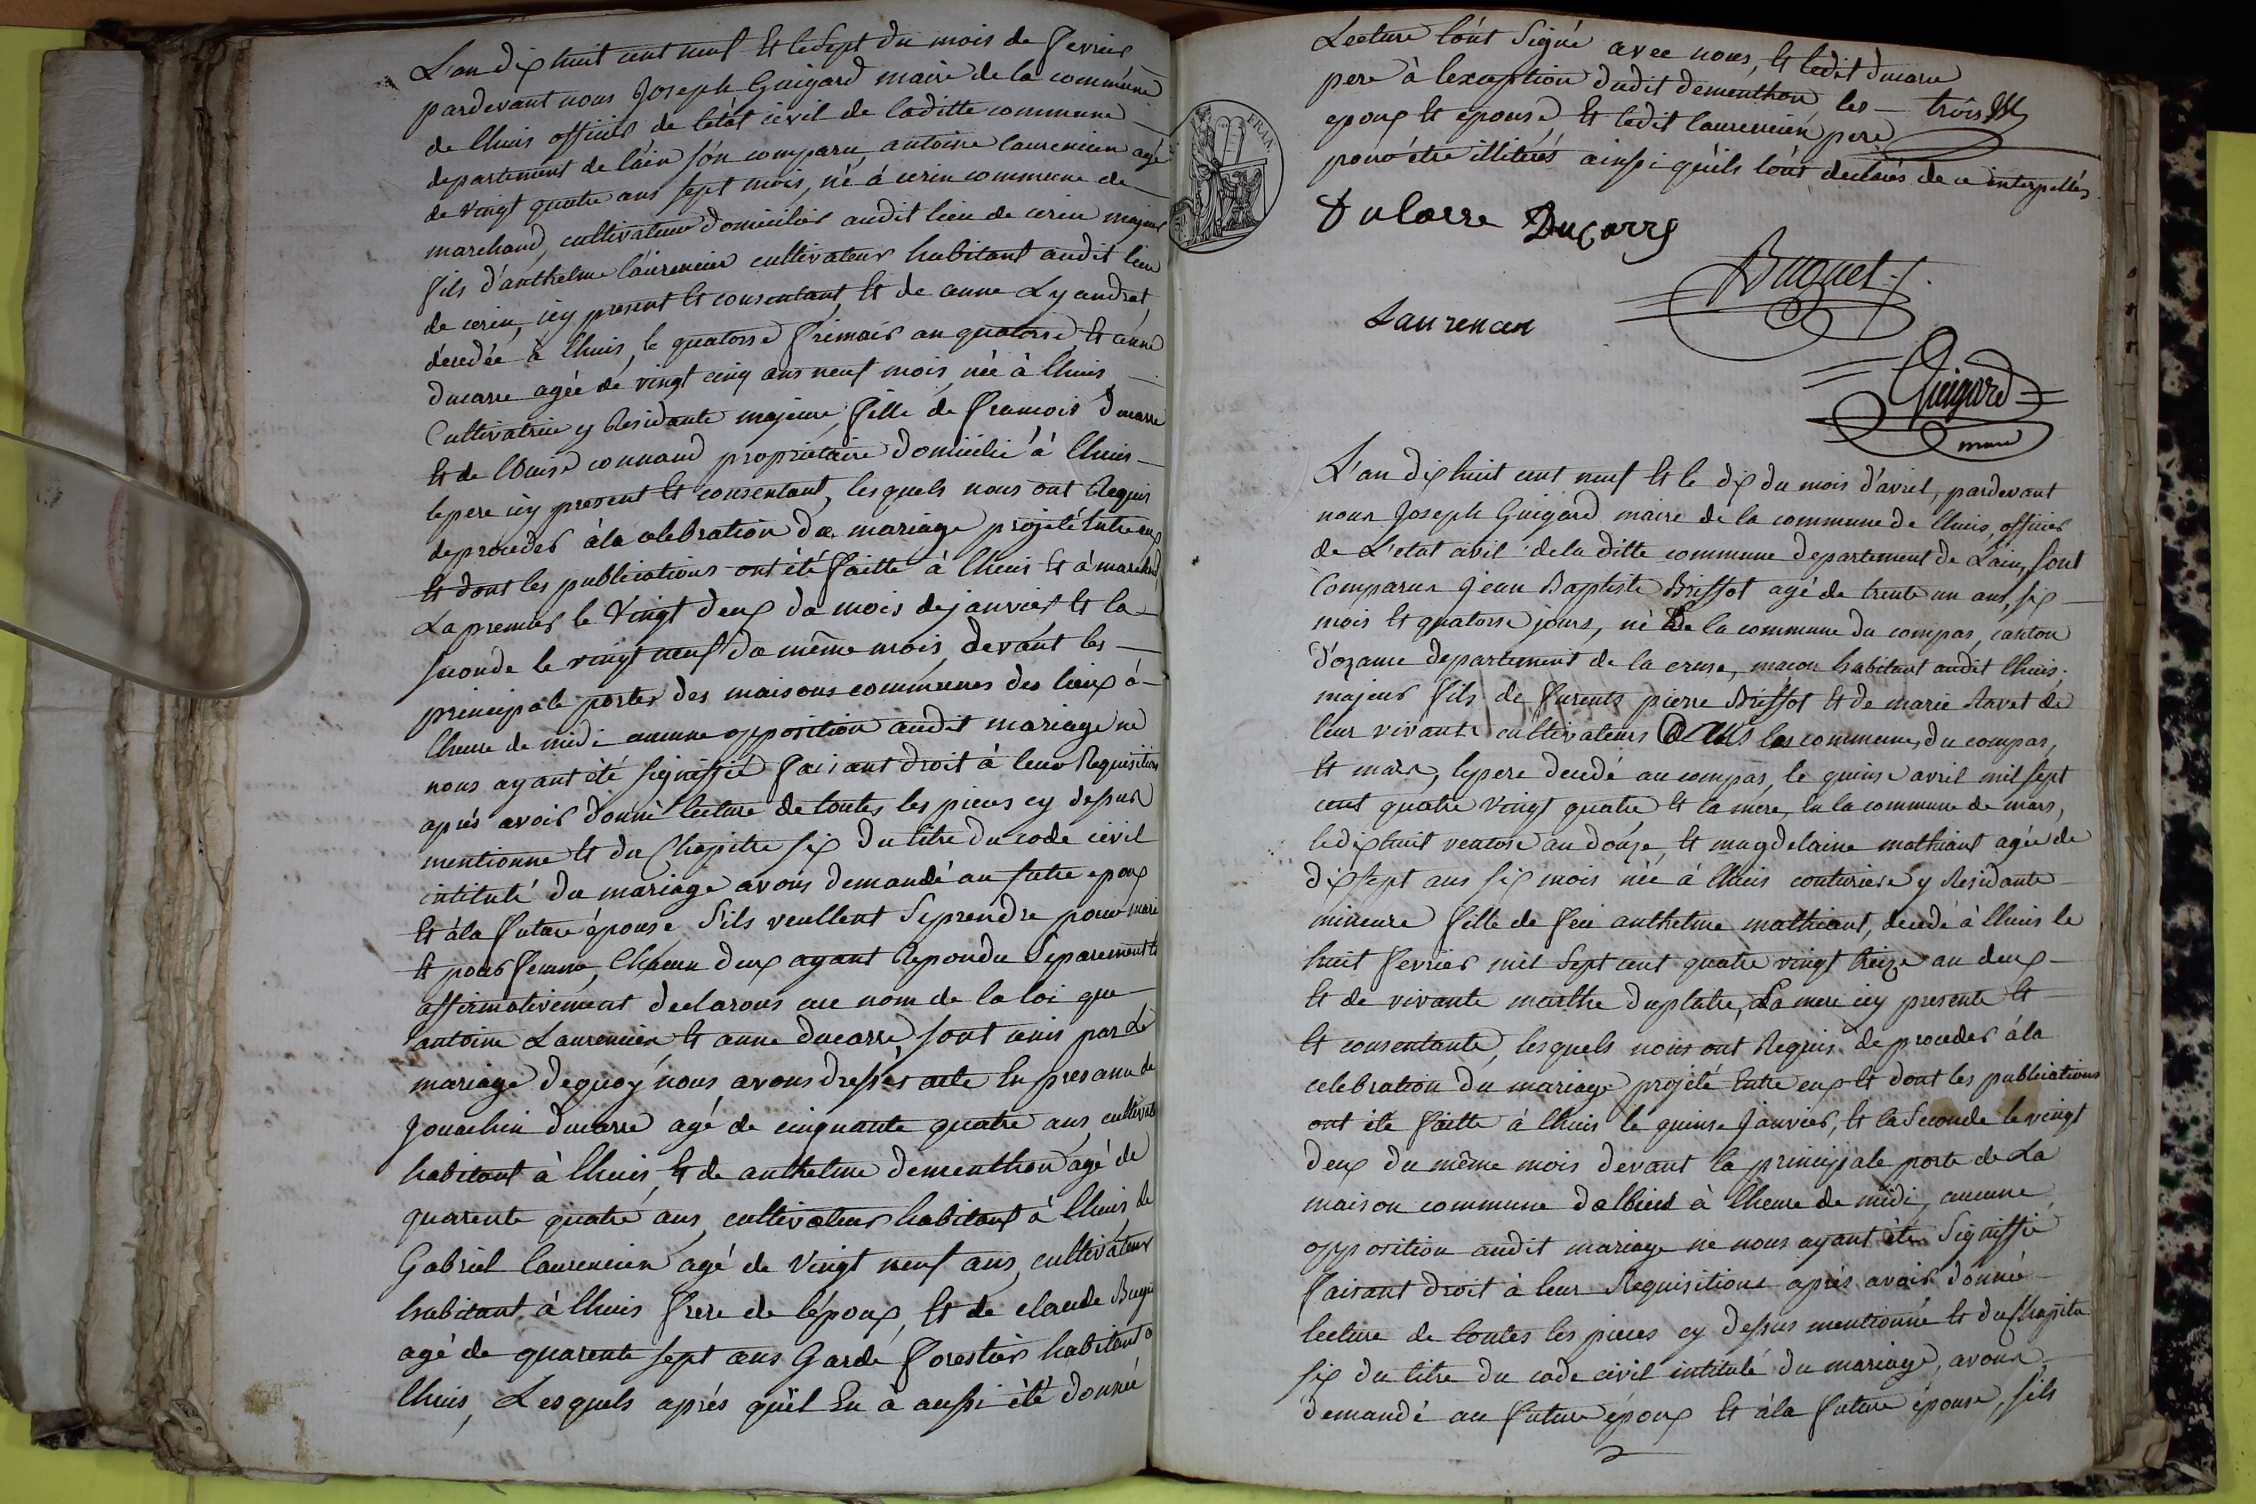 L'an dix huit cent neuf Et le sept du mois de fevrier
pardevant nous Joseph Guigard maire de la commune
de lhuis officier de létat civil de laditte commune
departement de láin són comparu antoine laurencin agé
de vingt quatre ans sept mois, né à cerin commune de
marchand, cultivateur domicilié audit lieu de cerin majeur
fils d'anthelme laurencin cultivateur habitant audit lieu
de cerin, icy present Et consentant, Et de anne Lyandrat,
décedée à lhuis, le quatorse frimair an quatorse, Et anne
ducarre agée de vingt cinq ans neuf mois, née à lhuis
Cultivatrice y Residante majeure, fille de francois Ducarre
Et de louise connand propriétaire domicilié à lhuis
le pere icy present Et consentant, lesquels nous ont Requis
de proceder à la celebration du mariage projeté Entre eux
Et dont les publications ont été faitte à lhuis Et à marchand
La premier le vingt deux du mois de janvier Et la
seconde le vingt neuf du même mois, devant les
principale portes des maisons communes des lieux à
lheure de midi aucune opposition audit mariage ne
nous ayant été signiffié faisant droit à leur Requisition
aprés avoir donné lecture de toutes les pieces cy dessus
mentionne Et du Chapitre six du titre du code civil
intitulé du mariage avons demandé au futre epoux
Et à la future épouse s'ils veullent se prendre pour mari
Et pour femme, Chacun deux ayant Repondu separement Et
affirmativement declarons au nom de la loi que
antoine Laurencin Et anne ducarre, sont unis par le
mariage dequoy nous avons dressés acte En presance de
Jouachin ducarre agé de cinquante quatre ans, cultivate
habitant à lhuis, Et de anthelme dementhon agé de
quarente quatre ans, cultivateur habitant à lhuis, de
Gabriel laurencin agé de vingt neuf ans, cultivateur
habitant à lhuis frere de lépoux, Et de claude Buguet
agé de quarente sept ans Garde forestier habitant à
lhuis, Lesquels aprés qu'il En à aussi été donné
Lecture lónt signé avec nous, Et ledit ducarre
pere à lexception dudit dementhon les trois
epoux Et épouse, Et ledit laurencin pere
pour être illiterés ainsi qu'ils lónt declarés de ce interpellés
FRAN.
Ducarre Ducarre
Buguet
Laurencin
Guigard
maire
L'an dix huit cent neuf Et le dix du mois d'avril, pardevant
nous Joseph Guigard maire de la commune de lhuis, officier
de L'etat civil de la ditte commune departement de Lain, sont
Comparus jean Baptiste Brissot agé de trente un ans, six
mois Et quatorse jours, né de la commune du compas, canton
d'ozance departement de la creuse, maçon habitant audit lhuis,
majeur fils de furents pierre Brissot Et de marie Ravet de
leur vivants cultivateurs dans les communes, du compas,
Et mars, le pere decedé au compas, le quinse avril mil sept
cent quatre vingt quatre Et la mere, En la commune de mars,
le dixhuit ventose an douze, Et magdelaine mathiant agée de
dixsept ans six mois née à lhuis couturiere y Residante
mineure fille de feu anthelme mathiant, decedé à lhuis le
huit fevrier mil sept cent quatre vingt treize an deux
Et de vivante marthe duplatre, La mere icy presente Et
Et consentante, lesquels nous ont Requis de proceder à la
celebration du mariage projeté Entre eux Et dont les publications
ont été faitte à lhuis le quinse janvier, Et la seconde le vingt
deux du même mois devant la principale porte de La
maison commune de lhuis à lheure de midi, aucune
opposition audit mariage ne nous ayant été signiffié
faisant droit à leur Requisitions aprés avoir donné
lecture de toutes les pieces cy dessus mentionné Et du Chapitre
six du titre du code civil intitulé du mariage, avons
demandé au future époux Et à la future épouse, s'ils